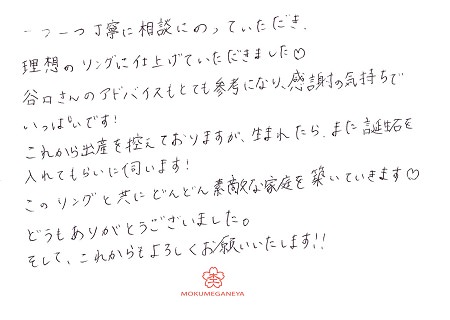 一つ一つ丁寧に相談にのっていただき、
理想のリングに仕上げていただきました♡
谷口さんのアドバイスもとても参考になり、感謝の気持ちで
いっぱいです!
これから出産を控えておりますが、生まれたら、また誕生石を
入れてもらいに伺います!
このリングと共にどんどん素敵な家庭を築いていきます♡
どうもありがとうございました。
そして、これからもよろしくお願いいたします!!
MOKUMEGANEYA